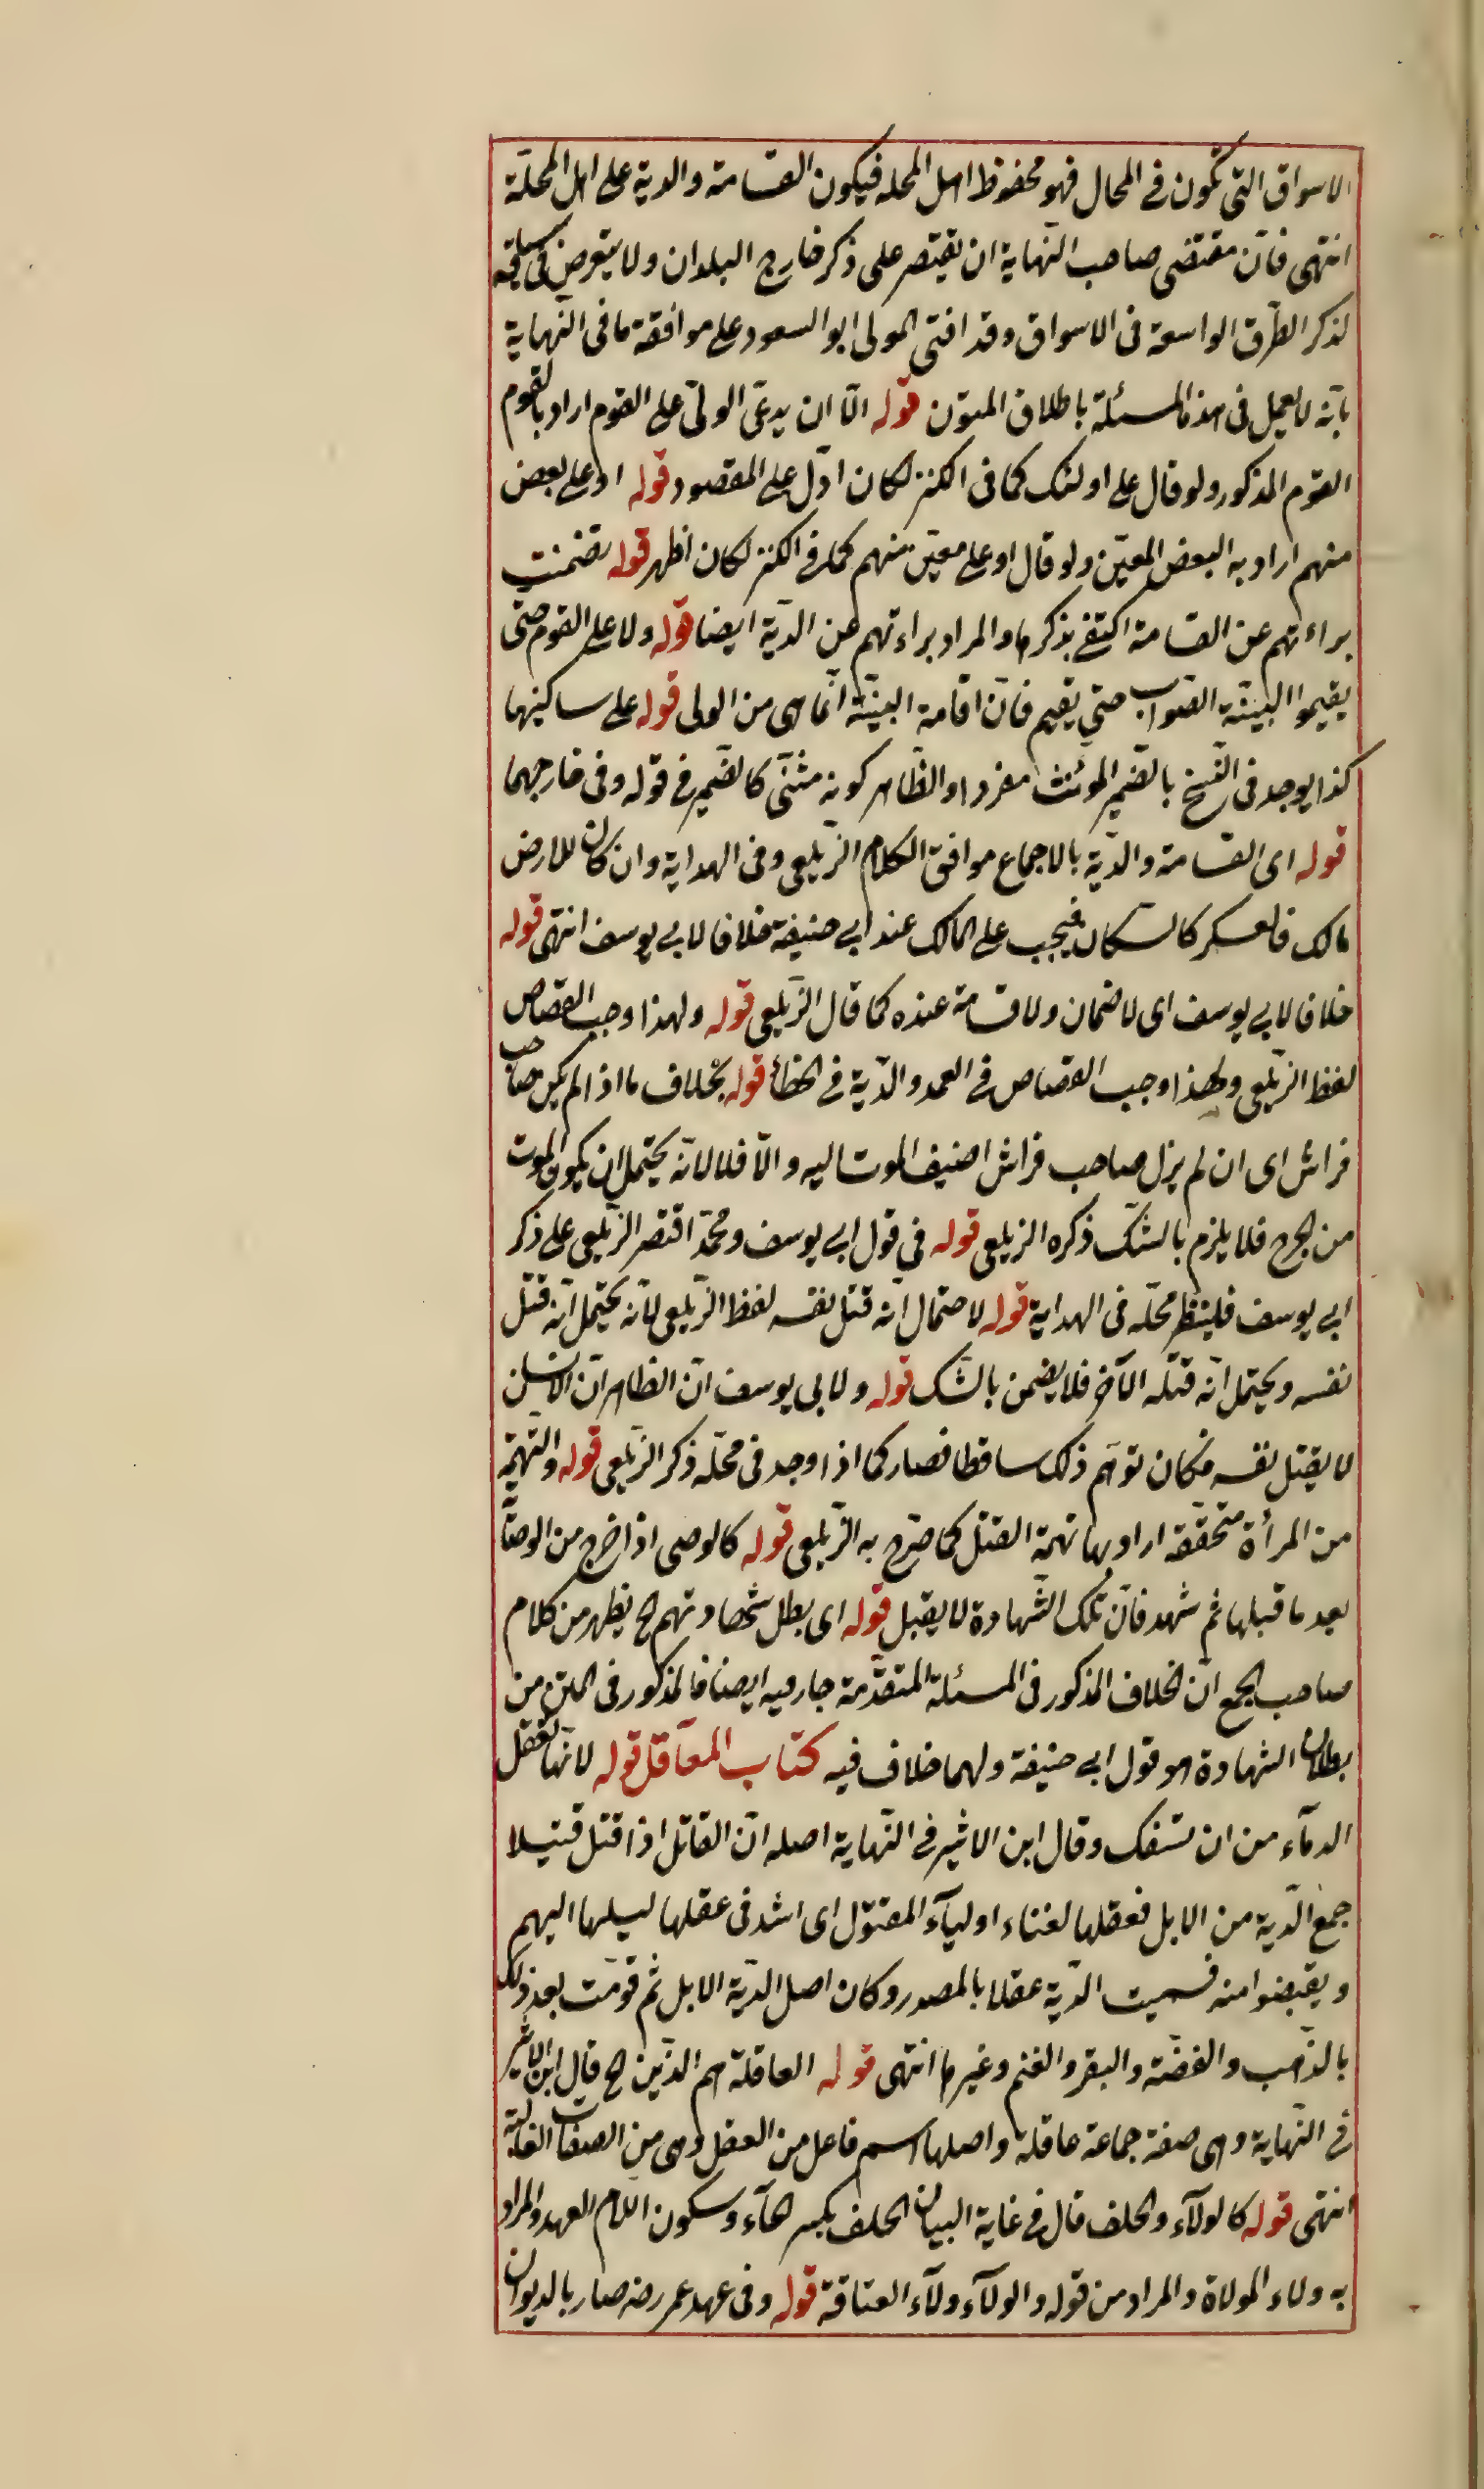 الاسواق التى تكون فى المحال فهو محفوظ اهل المحله فيكون القسامة والدية على اهل المحلة
انتهى فان مقتضى صاحب النّهاية ان يقتصر على ذكر خارج البلدان ولا يتعرض فى سياقه
لذكر الطّرق الواسعة فى الاسواق وقد افتى المولى ابو السعود على موافقة ما فى النّهاية
بانّه لا يعمل فى هذه المسئلة باطلاق المتون قوله الّا ان يدعى الولىّ على القوم اراد بالقوم
القوم المذكور ولو قال على اولئك كما فى الكنز لكان ادّل على المقصود قوله او على بعض
منهم اراد به البعض المعيّن ولو قال او على معيّن منهم كما فى الكنز لكان اظهر قوله تضمنت
براءتهم عن القسامة اكتفى بذكرها والمراد براءتهم عن الدّية ايضا قوله ولا على القوم حتى
يقيموا البيّنة الصّواب حتى يقيم فانّ اقامة البيّنة انّما هى من الولى قوله على ساكنيها
كذا يوجد فى النّسخ بالضّمير المؤنث مفردا والظّاهر كونه مثنّى كالضّمير فى قوله وفى خارجهما
قوله اى القسامة والدّية بالاجماع موافق الكلام الزّيلعى وفى الهداية وان كان للارض
مالك فالعسكر كالسكان فيجب على المالك عند ابى حنيفة خلافا لابى يوسف انتهى قوله
خلافا لابى يوسف اى لا ضمان ولا قسامة عنده كما قال الزّيلعى قوله ولهذا وجب القصاص
لفظ الزّيلعى ولهذا وجب القصاص فى العمد والدّية فى الخطأ قوله بخلاف ما اذا لم يكن صاحب
فراش اى ان لم يزل صاحب فراش اضيف الموت اليه والّا فلا لانّه يحتمل ان يكون الموت
من الجرح فلا يلزم بالشّك ذكره الزيلعى قوله فى قول ابى يوسف ومحمّد اقتصر الزّيلعى على ذكر
ابى يوسف فلينظر محلّه فى الهداية قوله لاحتمال انّه قتل نفسه لفظ الزّيلعى لانّه يحتمل انّه قتل
نفسه ويحتمل انّه قتله الآخر فلا يضمن بالشّك قوله ولابى يوسف انّ الظاهر انّ الانسان
لا يقتل نفسه فكان توهّم ذلك ساقطا فصار كما اذا وجد فى محلّه ذكر الزّيلعى قوله والتّهمة
من المرأة متحقّقة اراد بها تهمة القتل كما صرّح به الزّيلعى قوله كالوصى اذا خرج من الوصاية
بعد ما قبلها ثم شهد فانّ تلك الشّهادة لا يقبل قوله اى بطل شهادتهم الخ يظهر من كلام
صاحب المجمع انّ الخلاف المذكور فى المسئلة المتقدّمة جار فيه ايضا فالمذكور فى المتن من
بطلان الشهادة هو قول ابى حنيفة ولهما خلاف فيه كتاب المعاقل قوله لانّها تعقل
الدمآء من ان تسفك وقال ابن الاثير فى النّهاية اصله انّ القاتل اذا قتل قتيلا
جمع الدّية من الابل فعقلها لفناء اوليآء المقتول اى شد فى عقلها ليسلمها اليهم
ويقبضوا منه فسميت الدّية عقلا بالمصدر وكان اصل الدّية الابل ثم قوّمت بعد ذلك
بالذّهب والفضّة والبقر والغنم وغيرها انتهى قوله العاقلة هم الذّين الخ قال ابن الاثير
فى النّهاية وهى صفة جماعة عاقلة واصلها اسم فاعل من العقل وهى من الصفات الغالبة
انتهى قوله كالولآء والحلف قال فى غاية البيان الحلف بكسر الحآء وسكون اللّام العهد والمراد
به ولاء الموالاة والمراد من قوله والولآء ولآء العتاقة قوله وفى عهد عمر رضه صار بالديوان